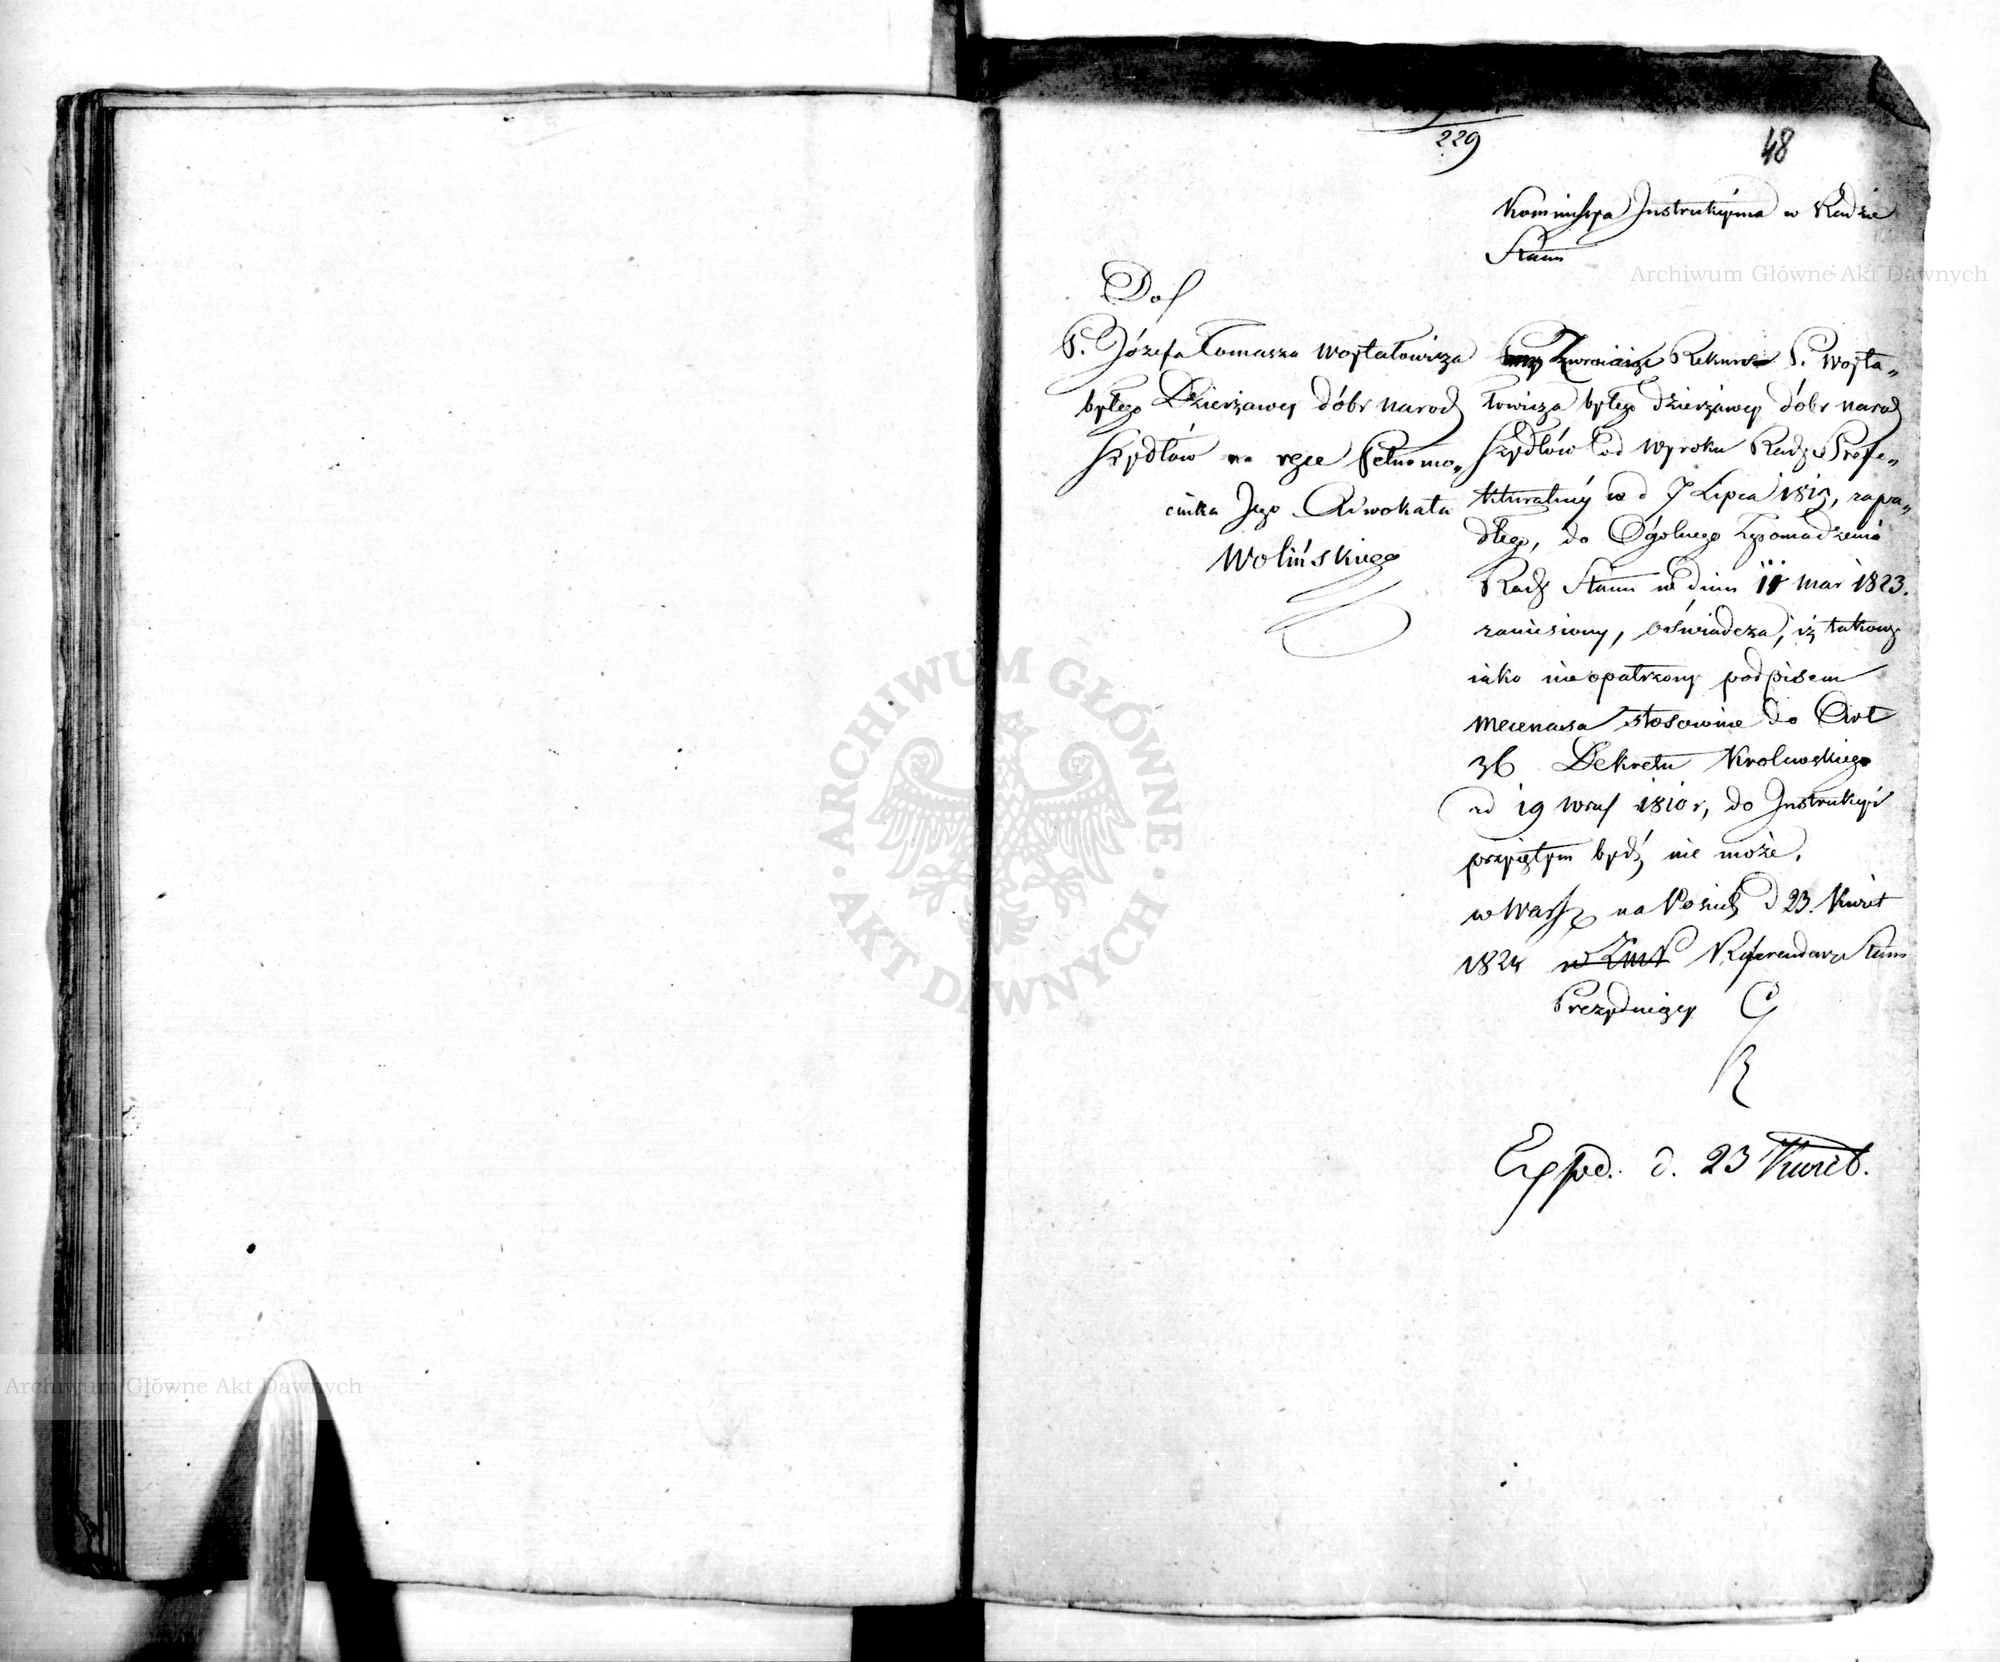 229
48
Kommissya Instrukcyina w Radzie
Stanu
Do
P. Józefa Tomasza Woytałowicza
byłego Dzierżawcy dóbr narod
Szydłów na ręce Pełnomo„
cnika Jego Adwokata
Wolińskiego
Zwracaiąc Rekurs P. Woyta„
łowicza byłego dzierżawcy dóbr narod
Szydłów od wyroku Rady Prefe„
kturalney w d 7 Lipca zapa„
dłego, do Ogólnego Zgromadzenia
Rady Stanu w dniu 11 mar 1823.
zaniesiony, oświadcza, iż takowy
iako nieopatrzony podpisem
Mecenasa stosownie do Art
36 Dekretu Krolewskiego
z d 19 Wrześ 1810 r, do Instrukcyi
przyiętym bydź nie może.
w Warsz na Posiedz d 23. Kwiet
1824 Referendarz Stanu
Prezyduiący
Exped. d. 23 Kwiet.
Archiwum Główne Akt Dawnych
ARCHIWUM GŁÓWNE • AKT DAWNYCH •
Archiwum Główne Akt Dawnych